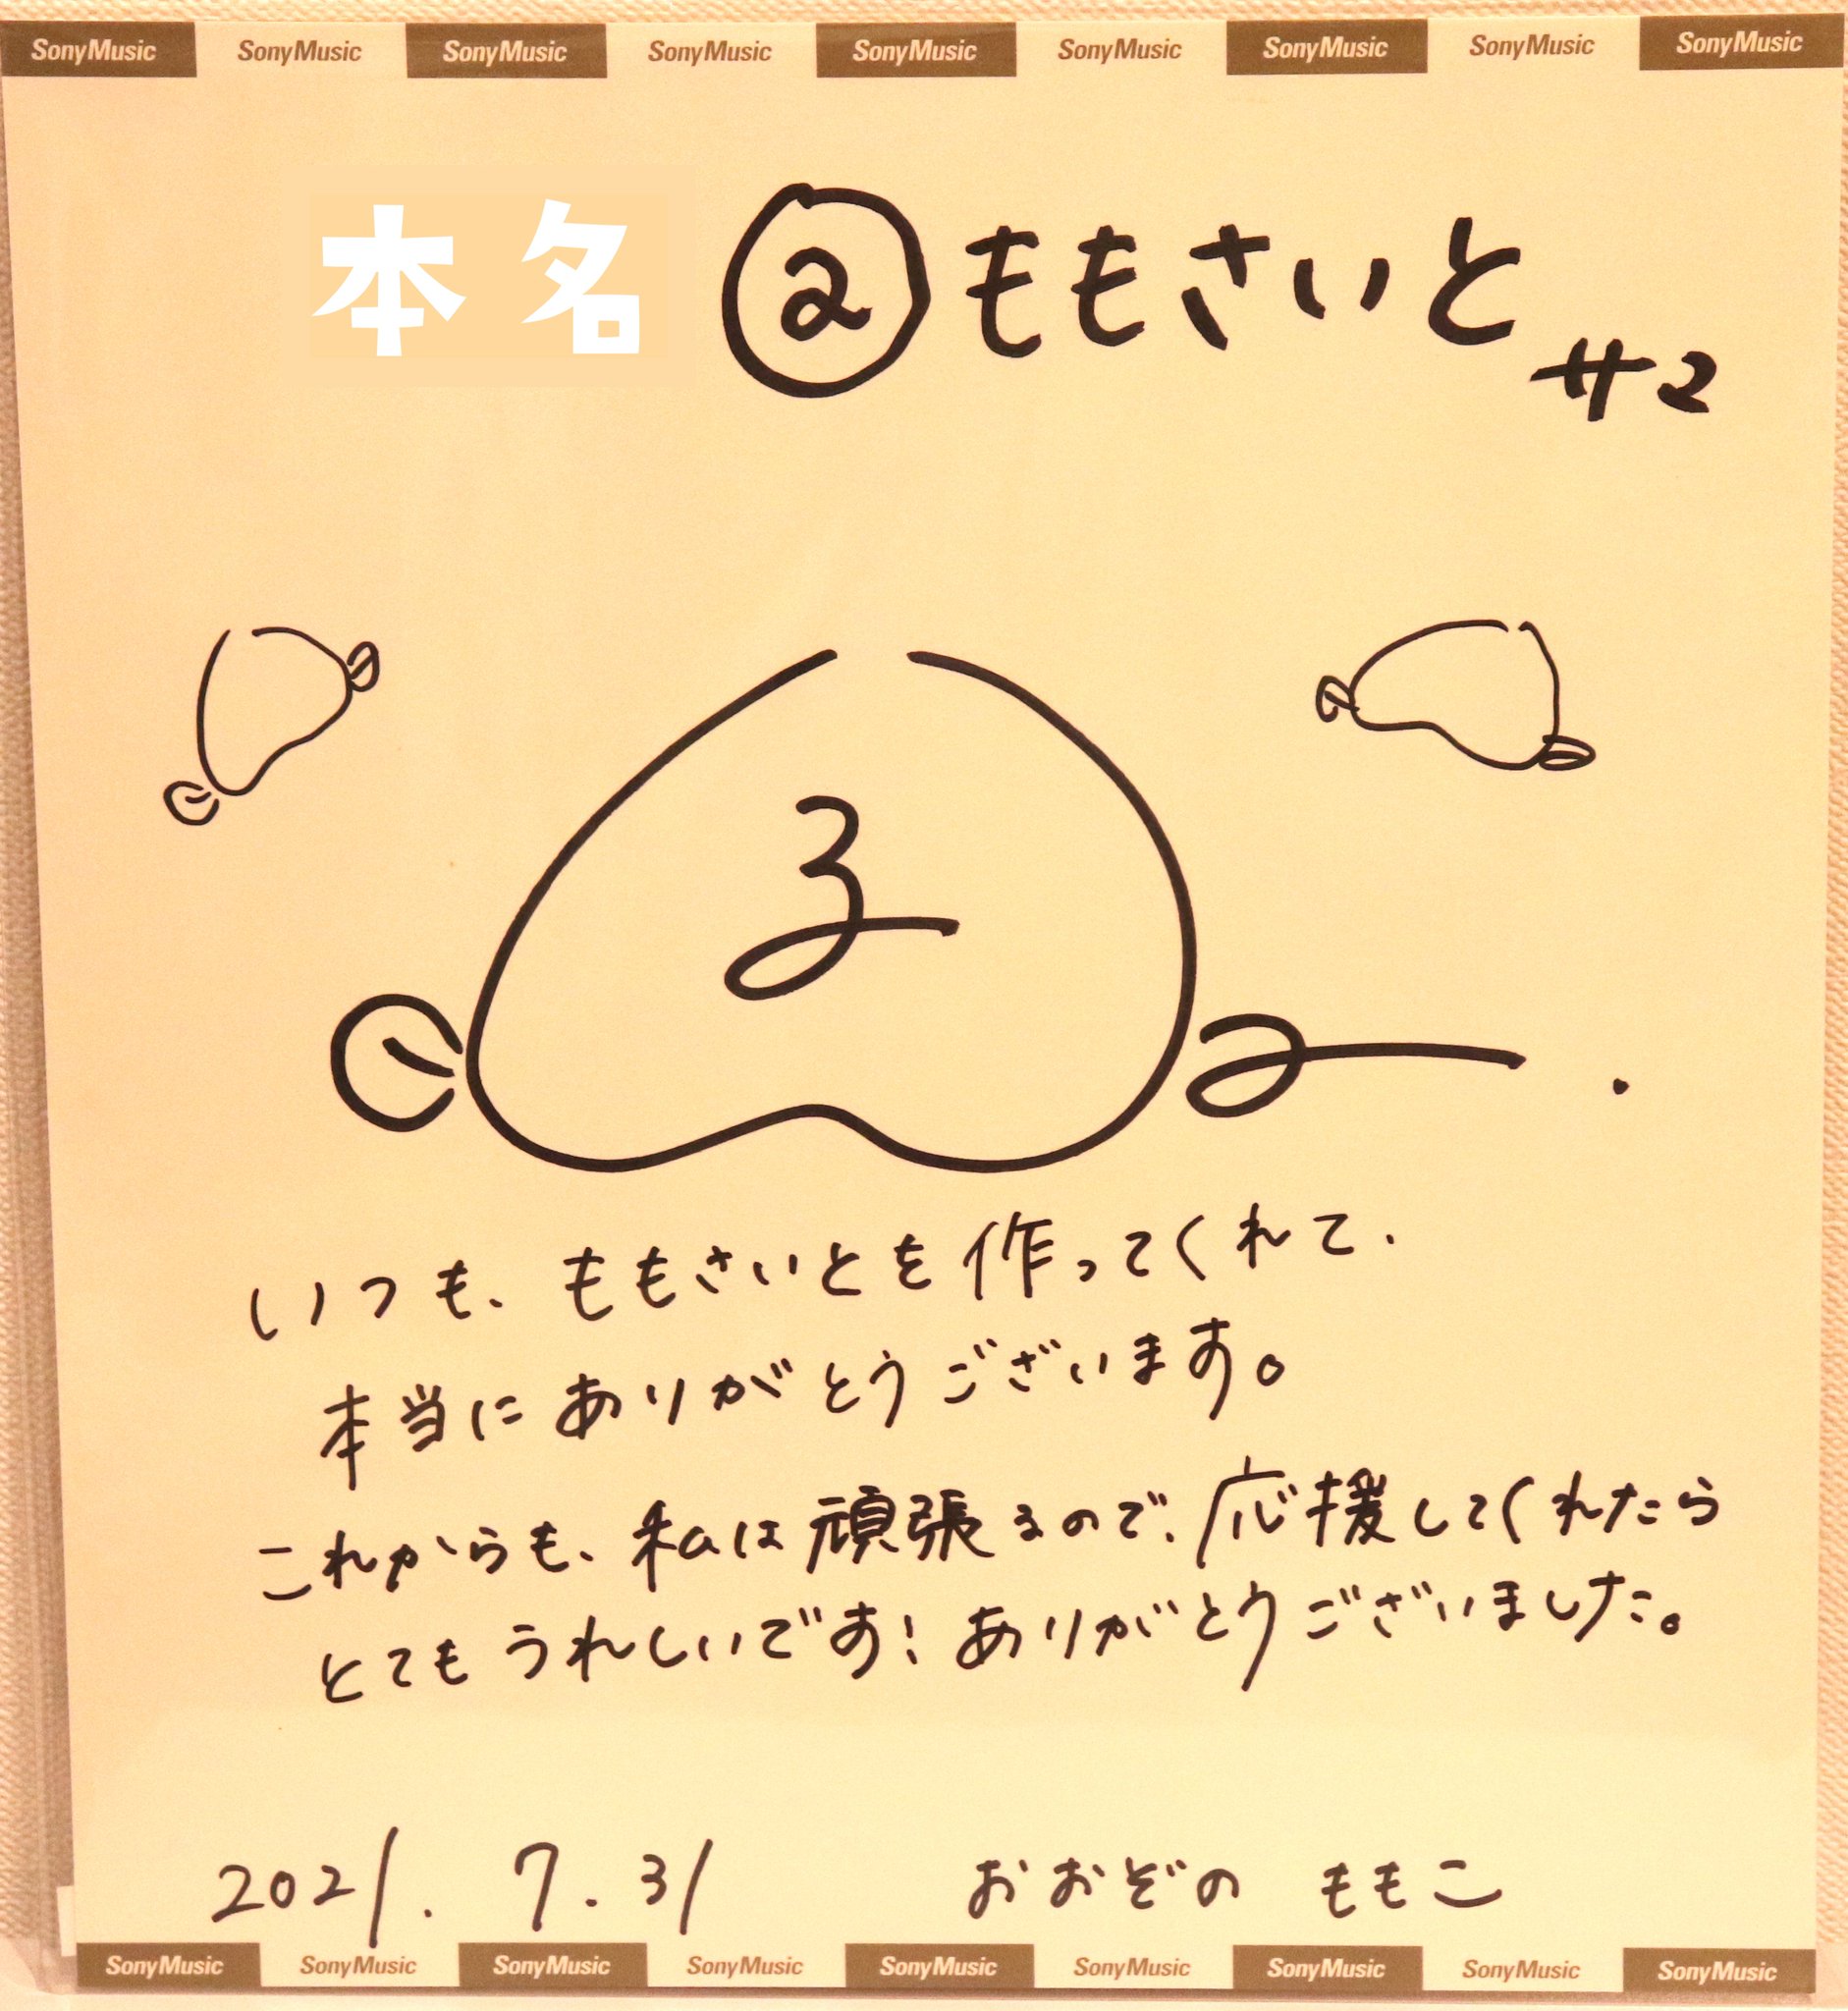 SonyMusic SonyMusic SonyMusic SonyMusic SonyMusic SonyMusic SonyMusic SonyMusic SonyMusic
本名 @ ももさいと
サマ
いつも、ももさいとを作ってくれて、
本当にありがとうございます。
これからも、私は頑張るので、応援してくれたら
とてもうれしいです！ありがとうございました。
2021. 7. 31 おおぞの ももこ
SonyMusic SonyMusic SonyMusic SonyMusic SonyMusic SonyMusic SonyMusic SonyMusic SonyMusic